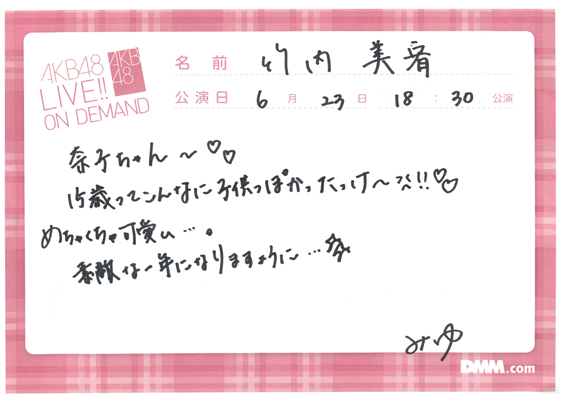 AKB48
LIVE!!
ON DEMAND
AKB
48
名前 竹内 美宥
公演日 6月 23日 18:30 公演
奈子ちゃん〜♡♡
15歳ってこんなに子供っぽかったっけ〜笑!!♡♡
めちゃくちゃ可愛い…。
素敵な一年になりますように…☆☆
みゆ
DMM.com